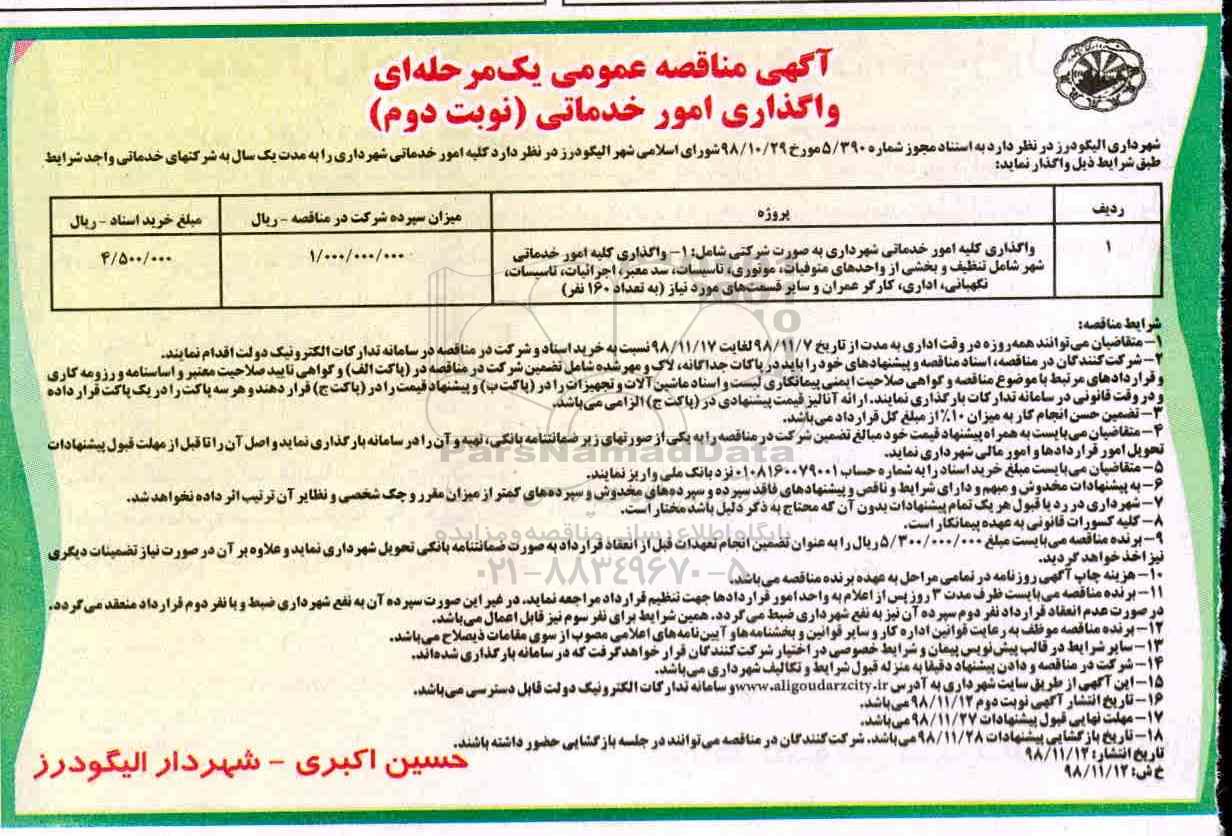 آگهی مناقصه عمومی یک‌مرحله‌ای
واگذاری امور خدماتی (نوبت دوم)
شهرداری الیگودرز در نظر دارد به استناد مجوز شماره ۵/۳۹۰ مورخ ۹۸/۱۰/۲۹ شورای اسلامی شهر الیگودرز در نظر دارد کلیه امور خدماتی شهرداری را به مدت یک سال به شرکتهای خدماتی واجد شرایط
طبق شرایط ذیل واگذار نماید:
ردیف پروژه میزان سپرده شرکت در مناقصه - ریال مبلغ خرید اسناد - ریال
۱ واگذاری کلیه امور خدماتی شهرداری به صورت شرکتی شامل: ۱- واگذاری کلیه امور خدماتی ۱/۰۰۰/۰۰۰/۰۰۰ ۴/۵۰۰/۰۰۰
شهر شامل تنظیف و بخشی از واحدهای متوفیات، موتوری، تاسیسات، سد معبر، اجرائیات، تاسیسات،
نگهبانی، اداری، کارگر عمران و سایر قسمت‌های مورد نیاز (به تعداد ۱۶۰ نفر)
شرایط مناقصه:
۱- متقاضیان می‌توانند همه روزه در وقت اداری به مدت از تاریخ ۹۸/۱۱/۷ لغایت ۹۸/۱۱/۱۷ نسبت به خرید اسناد و شرکت در مناقصه در سامانه تدارکات الکترونیک دولت اقدام نمایند.
۲- شرکت‌کنندگان در مناقصه، اسناد مناقصه و پیشنهادهای خود را باید در پاکات جداگانه، لاک و مهر شده شامل تضمین شرکت در مناقصه در (پاکت الف) و گواهی تایید صلاحیت معتبر و اساسنامه و رزومه کاری
و قراردادهای مرتبط با موضوع مناقصه و گواهی صلاحیت ایمنی پیمانکاری لیست و اسناد ماشین‌آلات و تجهیزات را در (پاکت ب) و پیشنهاد قیمت را در (پاکت ج) قرار دهند و هر سه پاکت را در یک پاکت قرار داده
و در وقت قانونی در سامانه تدارکات بارگذاری نمایند. ارائه آنالیز قیمت پیشنهادی در (پاکت ج) الزامی می‌باشد.
۳- تضمین حسن انجام کار به میزان ۱۰٪ از مبلغ کل قرارداد می‌باشد.
۴- متقاضیان می‌بایست به همراه پیشنهاد قیمت خود مبالغ تضمین شرکت در مناقصه را به یکی از صورتهای زیر ضمانتنامه بانکی، تهیه و آن را در سامانه بارگذاری نماید و اصل آن را تا قبل از مهلت قبول پیشنهادات
تحویل امور قراردادها و امور مالی شهرداری نماید.
۵- متقاضیان می‌بایست مبلغ خرید اسناد را به شماره حساب ۰۱۰۸۱۶۰۰۷۹۰۰۱ نزد بانک ملی واریز نمایند.
۶- به پیشنهادات مخدوش و مبهم و دارای شرایط و ناقص و پیشنهادهای فاقد سپرده و سپرده‌های مخدوش و سپرده‌های کمتر از میزان مقرر و چک شخصی و نظایر آن ترتیب اثر داده نخواهد شد.
۷- شهرداری در رد یا قبول هر یک تمام پیشنهادات بدون آن که محتاج به ذکر دلیل باشد مختار است.
۸- کلیه کسورات قانونی به عهده پیمانکار است.
۹- برنده مناقصه می‌بایست مبلغ ۵/۳۰۰/۰۰۰/۰۰۰ ریال را به عنوان تضمین انجام تعهدات قبل از انعقاد قرارداد به صورت ضمانتنامه بانکی تحویل شهرداری نماید و علاوه بر آن در صورت نیاز تضمینات دیگری
نیز اخذ خواهد گردید.
۱۰- هزینه چاپ آگهی روزنامه در تمامی مراحل به عهده برنده مناقصه می‌باشد.
۱۱- برنده مناقصه می‌بایست ظرف مدت ۳ روز پس از اعلام به واحد امور قراردادها جهت تنظیم قرارداد مراجعه نماید. در غیر این صورت سپرده آن به نفع شهرداری ضبط و با نفر دوم قرارداد منعقد می‌گردد.
در صورت عدم انعقاد قرارداد نفر دوم سپرده آن نیز به نفع شهرداری ضبط می‌گردد. همین شرایط برای نفر سوم نیز قابل اعمال می‌باشد.
۱۲- برنده مناقصه موظف به رعایت قوانین اداره کار و سایر قوانین و بخشنامه‌ها و آیین‌نامه‌های اعلامی مصوب از سوی مقامات ذیصلاح می‌باشد.
۱۳- سایر شرایط در قالب پیش‌نویس پیمان و شرایط خصوصی در اختیار شرکت‌کنندگان قرار خواهد گرفت که در سامانه بارگذاری شده‌اند.
۱۴- شرکت در مناقصه و دادن پیشنهاد دقیقا به منزله قبول شرایط و تکالیف شهرداری می‌باشد.
۱۵- این آگهی از طریق سایت شهرداری به آدرس www.aligoudarzcity.ir و سامانه تدارکات الکترونیک دولت قابل دسترسی می‌باشد.
۱۶- تاریخ انتشار آگهی نوبت دوم ۹۸/۱۱/۱۲ می‌باشد.
۱۷- مهلت نهایی قبول پیشنهادات ۹۸/۱۱/۲۷ می‌باشد.
۱۸- تاریخ بازگشایی پیشنهادات ۹۸/۱۱/۲۸ می‌باشد. شرکت‌کنندگان در مناقصه می‌توانند در جلسه بازگشایی حضور داشته باشند.
تاریخ انتشار: ۹۸/۱۱/۱۲
خ ش: ۹۸/۱۱/۱۲
حسین اکبری - شهردار الیگودرز
ParsNamadData
پایگاه اطلاع رسانی مناقصه و مزایده
۰۲۱-۸۸۳۴۹۶۷۰-۵